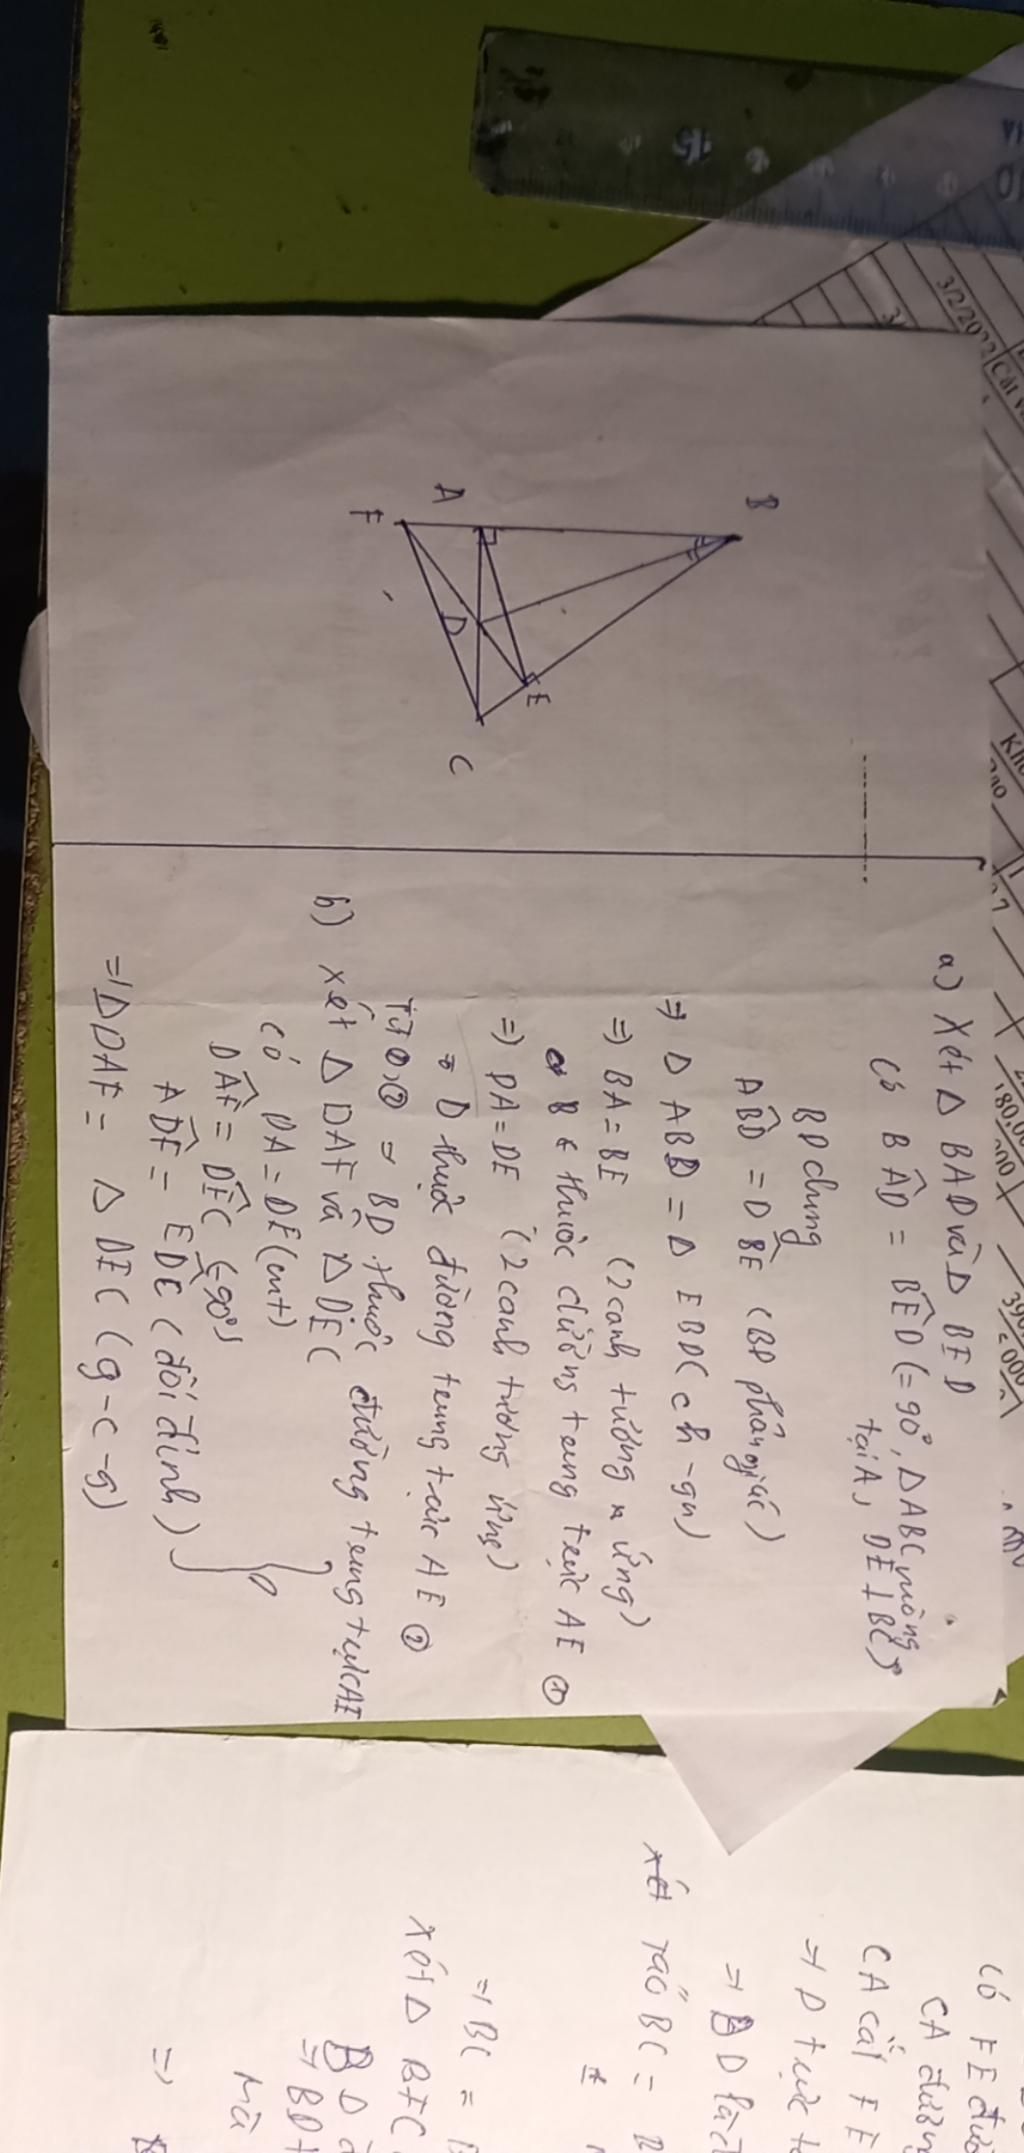 B
A
F
D
E
C
a) Xét Δ BAD và Δ BED
Có BAD = BED (= 90°, Δ ABC vuông
tại A, DE ⊥ BC)
BD chung
ABD = DBE (BD phân giác)
⇒ Δ ABD = Δ EBD (ch - gn)
⇒ BA = BE (2 cạnh tương ứng)
B thuộc đường trung trực AE ①
⇒ DA = DE (2 cạnh tương ứng)
D thuộc đường trung trực AE ②
Từ ①, ② ⇒ BD thuộc đường trung trực AE
b) Xét Δ DAF và Δ DEC
Có DA = DE (cmt)
DAF = DEC (=90°)
ADF = EDC (đối đỉnh)
⇒ Δ DAF = Δ DEC (g-c-g)
Có FE
CA
CA cắt FE
⇒ D trực
⇒ BD là
BC =
⇒ BC =
Xét Δ BFC
BD
⇒ BD
Mà
⇒
3/2/2022
15